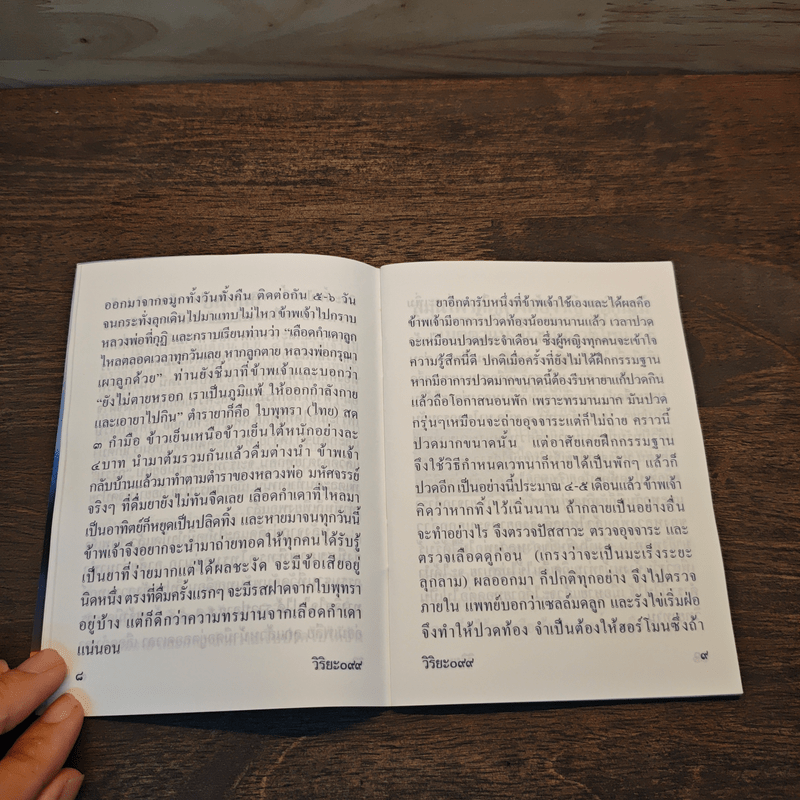 ออกมาจากจมูกทั้งวันทั้งคืน ติดต่อกัน ๕-๖ วัน
จนกระทั่งลุกเดินไปมาแทบไม่ไหว ข้าพเจ้าไปกราบ
หลวงพ่อที่กุฏิ และกราบเรียนท่านว่า “เลือดกำเดาลูก
ไหลตลอดเวลาทุกวันเลย หากลูกตาย หลวงพ่อกรุณา
เผาลูกด้วย” ท่านยังชี้มาที่ข้าพเจ้าและบอกว่า
“ยังไม่ตายหรอก เราเป็นภูมิแพ้ ให้ออกกำลังกาย
และเอายาไปกิน” ตำรายาก็คือ ใบพุทรา (ไทย) สด
๓ กำมือ ข้าวเย็นเหนือข้าวเย็นใต้หนักอย่างละ
๔บาท นำมาต้มรวมกันแล้วดื่มต่างน้ำ ข้าพเจ้า
กลับบ้านแล้วมาทำตามตำราของหลวงพ่อ มหัศจรรย์
จริงๆ ที่ดื่มยายังไม่ทันจืดเลย เลือดกำเดาที่ไหลมา
เป็นอาทิตย์ก็หยุดเป็นปลิดทิ้ง และหายมาจนทุกวันนี้
ข้าพเจ้าจึงอยากจะนำมาถ่ายทอดให้ทุกคนได้รับรู้
เป็นยาที่ง่ายมากแต่ได้ผลชะงัด จะมีข้อเสียอยู่
นิดหนึ่ง ตรงที่ดื่มครั้งแรกๆ จะมีรสฝาดจากใบพุทรา
อยู่บ้าง แต่ก็ดีกว่าความทรมานจากเลือดกำเดา
แน่นอน
๘ วิริยะ๐๙๙
ยาอีกตำรับหนึ่งที่ข้าพเจ้าใช้เองและได้ผลคือ
ข้าพเจ้ามีอาการปวดท้องน้อยมานานแล้ว เวลาปวด
จะเหมือนปวดประจำเดือน ซึ่งผู้หญิงทุกคนจะเข้าใจ
ความรู้สึกนี้ดี ปกติเมื่อครั้งที่ยังไม่ได้ฝึกกรรมฐาน
หากมีอาการปวดมากขนาดนี้ต้องรีบหายาแก้ปวดกิน
แล้วถือโอกาสนอนพัก เพราะทรมานมาก มันปวด
กรุ่นๆเหมือนจะถ่ายอุจจาระแต่ก็ไม่ถ่าย คราวนี้
ปวดมากขนาดนั้น แต่อาศัยเคยฝึกกรรมฐาน
จึงใช้วิธีกำหนดเวทนาก็หายได้เป็นพักๆ แล้วก็
ปวดอีก เป็นอย่างนี้ประมาณ ๔-๕ เดือนแล้ว ข้าพเจ้า
คิดว่าหากทิ้งไว้เนิ่นนาน ถ้ากลายเป็นอย่างอื่น
จะทำอย่างไร จึงตรวจปัสสาวะ ตรวจอุจจาระ และ
ตรวจเลือดดูก่อน (เกรงว่าจะเป็นมะเร็งระยะ
ลุกลาม) ผลออกมา ก็ปกติทุกอย่าง จึงไปตรวจ
ภายใน แพทย์บอกว่าเซลล์มดลูก และรังไข่เริ่มฝ่อ
จึงทำให้ปวดท้อง จำเป็นต้องให้ฮอร์โมนซึ่งถ้า
วิริยะ๐๙๙ ๙